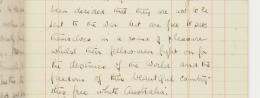 been decided that they are not to be
sent to the War but are free to seek
themselves in a scene of pleasure
whilst their fellow-men fight on for
the destinies of the World and the
freedom of this beautiful country
this free white Australia.